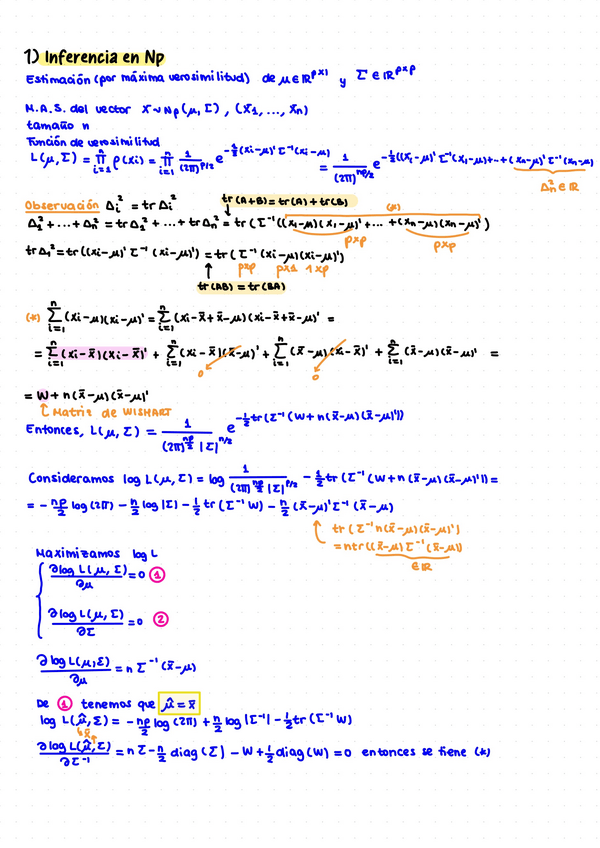 1) Inferencia en Np
Estimación (por máxima verosimilitud) de μ∈ℝᵖˣ¹ y Σ∈ℝᵖˣᵖ
M.A.S. del vector X~Np(μ, Σ), (X₁, ..., Xn)
tamaño n
Función de verosimilitud
L(μ, Σ) = ∏_{i=1}^{n} p(xi) = ∏_{i=1}^{n} 1/(2π)^{p/2} e^{-1/2(xi-μ)' Σ⁻¹(xi-μ)} = 1/(2π)^{np/2} e^{-1/2((x₁-μ)' Σ⁻¹(x₁-μ)+...+(xn-μ)' Σ⁻¹(xn-μ)}
Δn² ∈ ℝ
tr(A+B) = tr(A) + tr(B)
Observación Δi² = tr Δi² (*)
Δ₁² + ... + Δn² = tr Δ₁² + ... + tr Δn² = tr(Σ⁻¹((x₁-μ)(x₁-μ)' + ... + (xn-μ)(xn-μ)')
pxp pxp
tr Δ₁² = tr((xi-μ)' Σ⁻¹ (xi-μ)') = tr(Σ⁻¹ (xi-μ)(xi-μ)')
pxp px1 1xp
tr(AB) = tr(BA)
(*) ∑_{i=1}^{n} (xi-μ)(xi-μ)' = ∑_{i=1}^{n} (xi-x̄+x̄-μ)(xi-x̄+x̄-μ)' =
= ∑_{i=1}^{n} (xi-x̄)(xi-x̄)' + ∑_{i=1}^{n} (xi-x̄)(x̄-μ)' + ∑_{i=1}^{n} (x̄-μ)(xi-x̄)' + ∑_{i=1}^{n} (x̄-μ)(x̄-μ)' =
0 0
= W + n(x̄-μ)(x̄-μ)'
Matriz de WISHART
Entonces, L(μ, Σ) = 1/((2π)^{np/2} |Σ|^{n/2}) e^{-1/2 tr(Σ⁻¹(W+n(x̄-μ)(x̄-μ)'))}
Consideramos log L(μ, Σ) = log 1/((2π)^{np/2} |Σ|^{p/2}) - 1/2 tr(Σ⁻¹(W+n(x̄-μ)(x̄-μ)')) =
= - np/2 log(2π) - n/2 log|Σ| - 1/2 tr(Σ⁻¹W) - n/2 (x̄-μ)' Σ⁻¹ (x̄-μ)
tr(Σ⁻¹n(x̄-μ)(x̄-μ)')
= ntr((x̄-μ) Σ⁻¹ (x̄-μ))
∈ℝ
Maximizamos log L
∂log L(μ, Σ)/∂μ = 0 ①
∂log L(μ, Σ)/∂Σ = 0 ②
∂log L(μ, Σ)/∂μ = n Σ⁻¹ (x̄-μ)
De ① tenemos que μ̂ = x̄
log L(μ̂, Σ) = - np/2 log(2π) + n/2 log|Σ⁻¹| - 1/2 tr(Σ⁻¹W)
x̄
∂log L(μ̂, Σ)/∂Σ⁻¹ = nΣ - n/2 diag(Σ) - W + 1/2 diag(W) = 0 entonces se tiene (*)